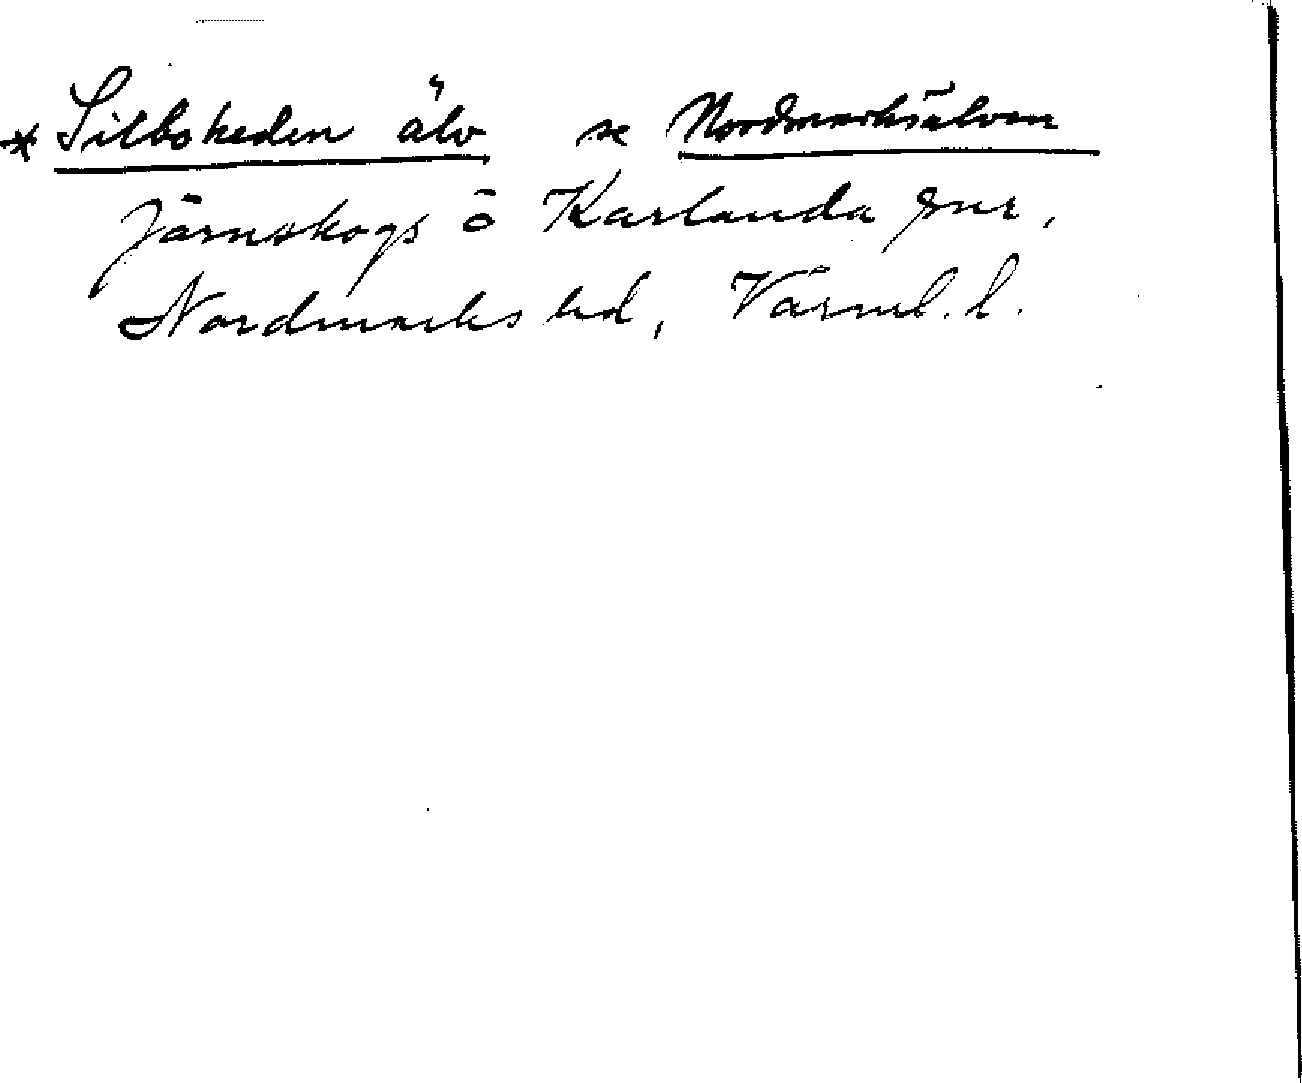 * Silboheden älv se Nordmarksälven
Järnskogs o Karlanda snr,
Nordmarks hd, Värml. l.